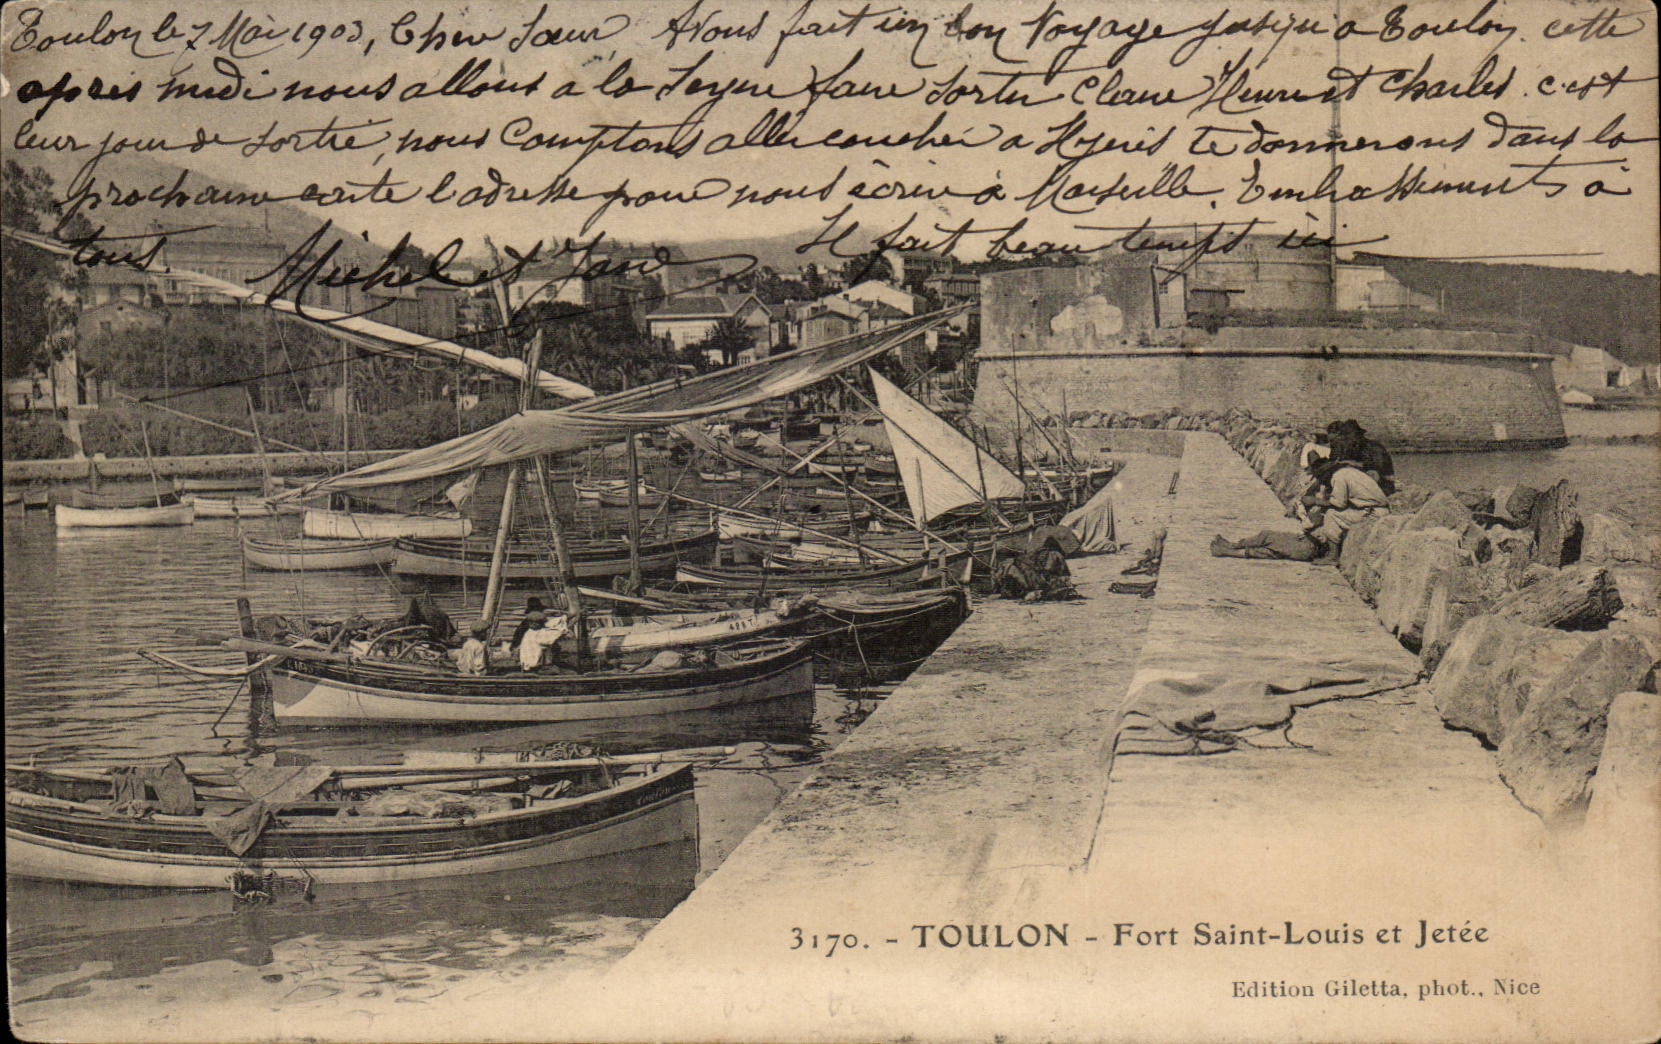 Toulon le 7 Mai 1903, Cher Sœur Avons fait un bon Voyage jusqu'a Toulon. cette
apres midi nous allons a la Seyne faire sortir Claire Henri et Charles. c'est
leur jour de sortie, nous Comptons aller coucher a Hyeres te donnerons dans la
prochaine carte l'adresse pour nous écrire à Marseille. Embrassements à
tous. Michel et Jane Il fait beau temps ici
401
TOULON
3170. - TOULON - Fort Saint-Louis et Jetée
Edition Giletta, phot., Nice